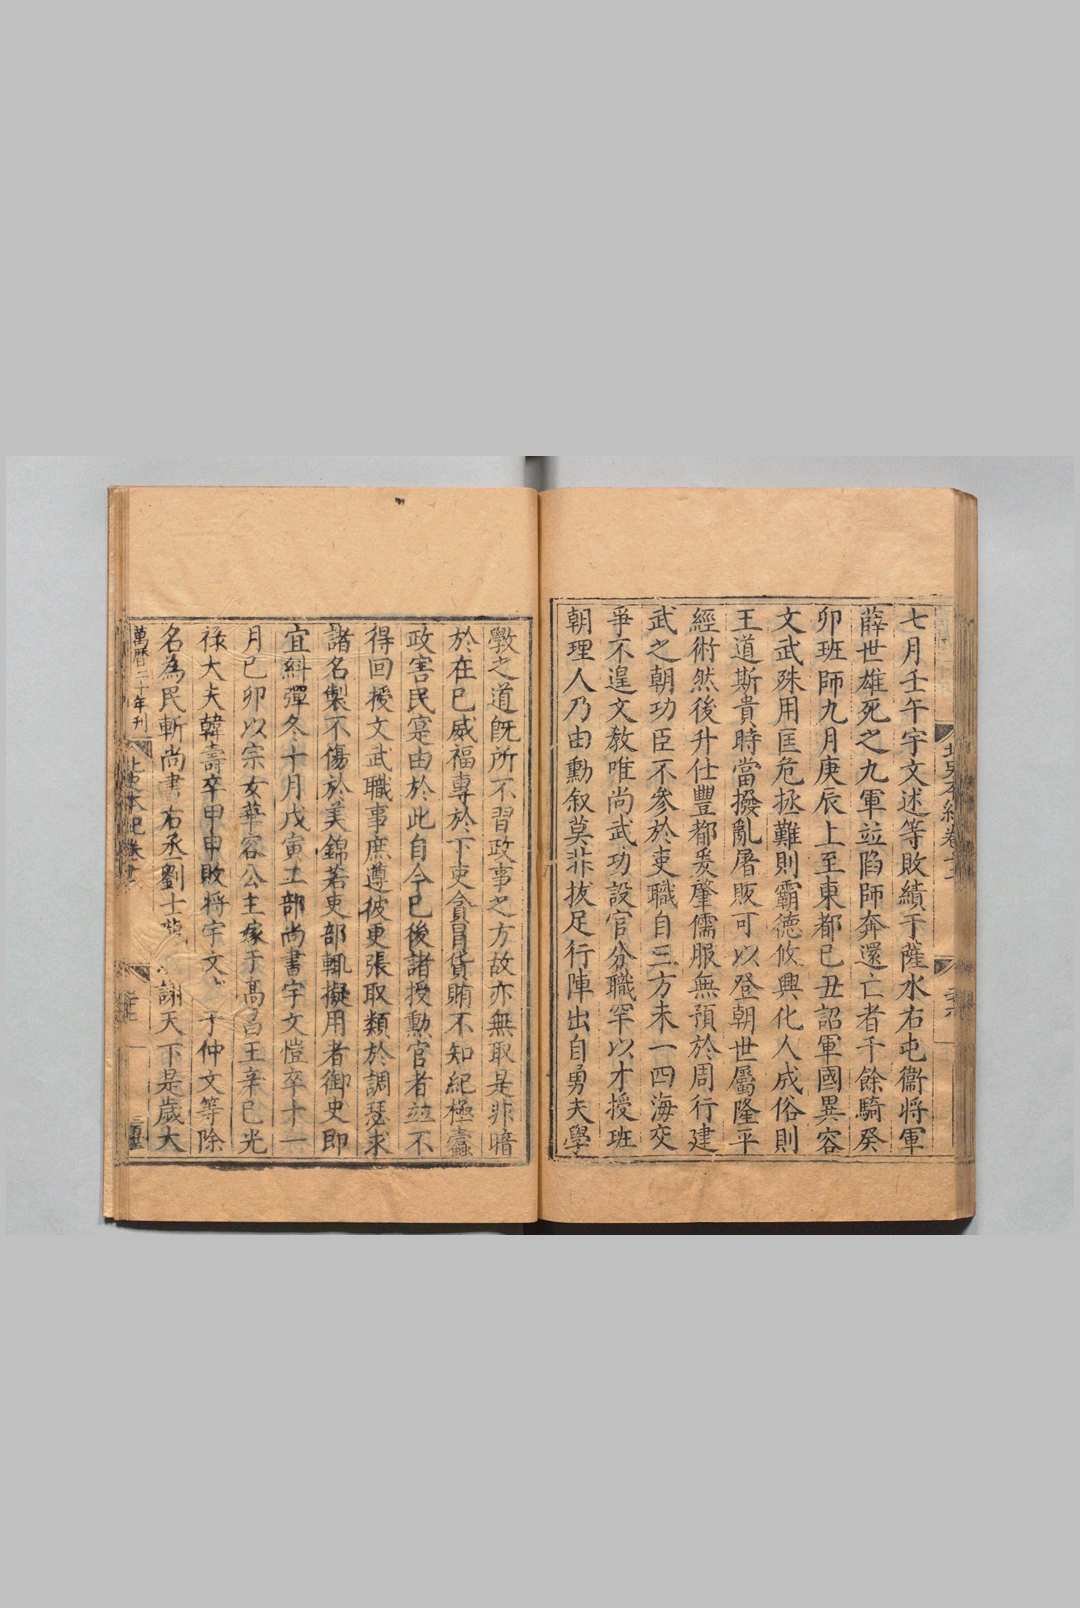 七月壬午宇文述等敗績于薩水右屯衞将軍
薛世雄死之九軍並陷師奔還亡者千餘騎癸
卯班師九月庚辰上至東都已丑詔軍國異容
文武殊用匡危拯難則霸德攸興化人成俗則
王道斯貴時當撥亂屠販可以登朝世屬隆平
經術然後升仕豐都爰肇儒服無預於周行建
武之朝功臣不參於吏職自三方未一四海交
爭不遑文教唯尚武功設官分職罕以才授班
朝理人乃由勳叙莫非拔足行陣出自勇夫學
斆之道旣所不習政事之方故亦無取是非暗
於在已威福專於下吏貪冒貨賄不知紀極蠧
政害民寔由於此自今已後諸授勳官者並不
得回授文武職事庶遵彼更張取類於調瑟求
諸名製不傷於美錦若吏部輒擬用者御史即
宜糾彈冬十月戊寅工部尚書宇文愷卒十一
月已卯以宗女華容公主嫁于高昌王辛已光
禄大夫韓壽卒甲申敗将宇文于仲文等除
名為民斬尚書右丞劉士謝天下是歲大
萬曆二十年刊
北史本紀卷十二